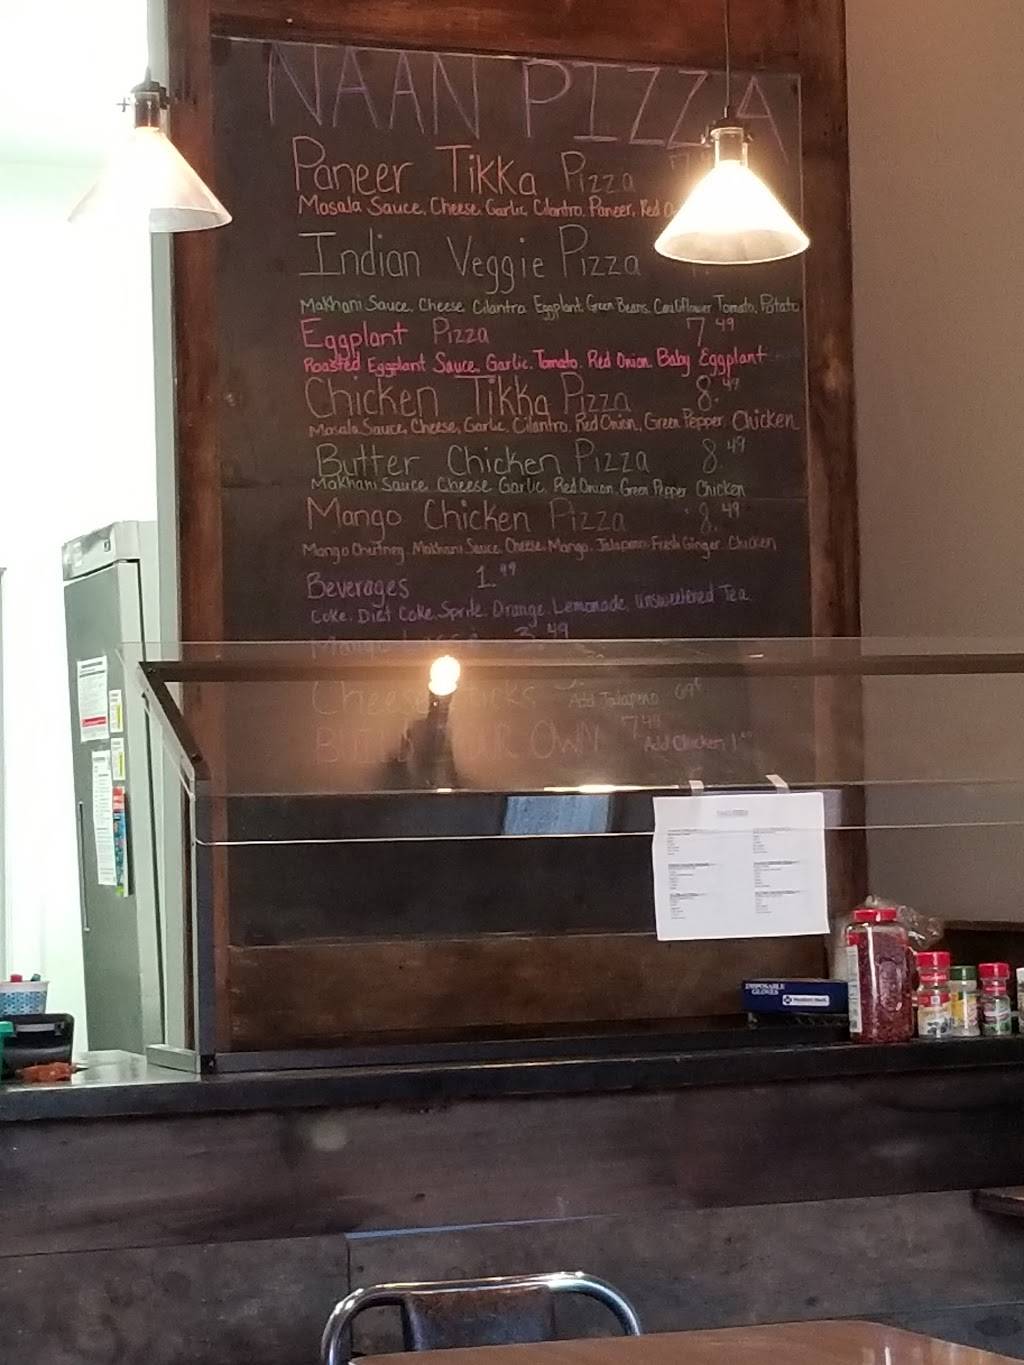 NAAN PIZZA
Paneer Tikka Pizza
Masala Sauce, Cheese, Garlic, Cilantro, Paneer, Red
Indian Veggie Pizza
Makhani Sauce, Cheese, Cilantro, Eggplant, Green Beans, Cauliflower, Tomato, Potato
Eggplant Pizza 7.49
Roasted Eggplant Sauce, Garlic, Tomato, Red Onion, Baby Eggplant
Chicken Tikka Pizza 8.49
Masala Sauce, Cheese, Garlic, Cilantro, Red Onion, Green Pepper, Chicken
Butter Chicken Pizza 8.49
Makhani Sauce, Cheese, Garlic, Red Onion, Green Pepper, Chicken
Mango Chicken Pizza 8.49
Mango Chutney, Makhani Sauce, Cheese, Mango, Jalapeno, Fresh Ginger, Chicken
Beverages 1.99
Coke, Diet Coke, Sprite, Orange, Lemonade, Unsweetened Tea
Mango Lassi 3.49
Cheese Sticks Add Jalapeno 69¢
BUILD YOUR OWN 7.49 Add Chicken 1.00
DISPOSABLE GLOVES